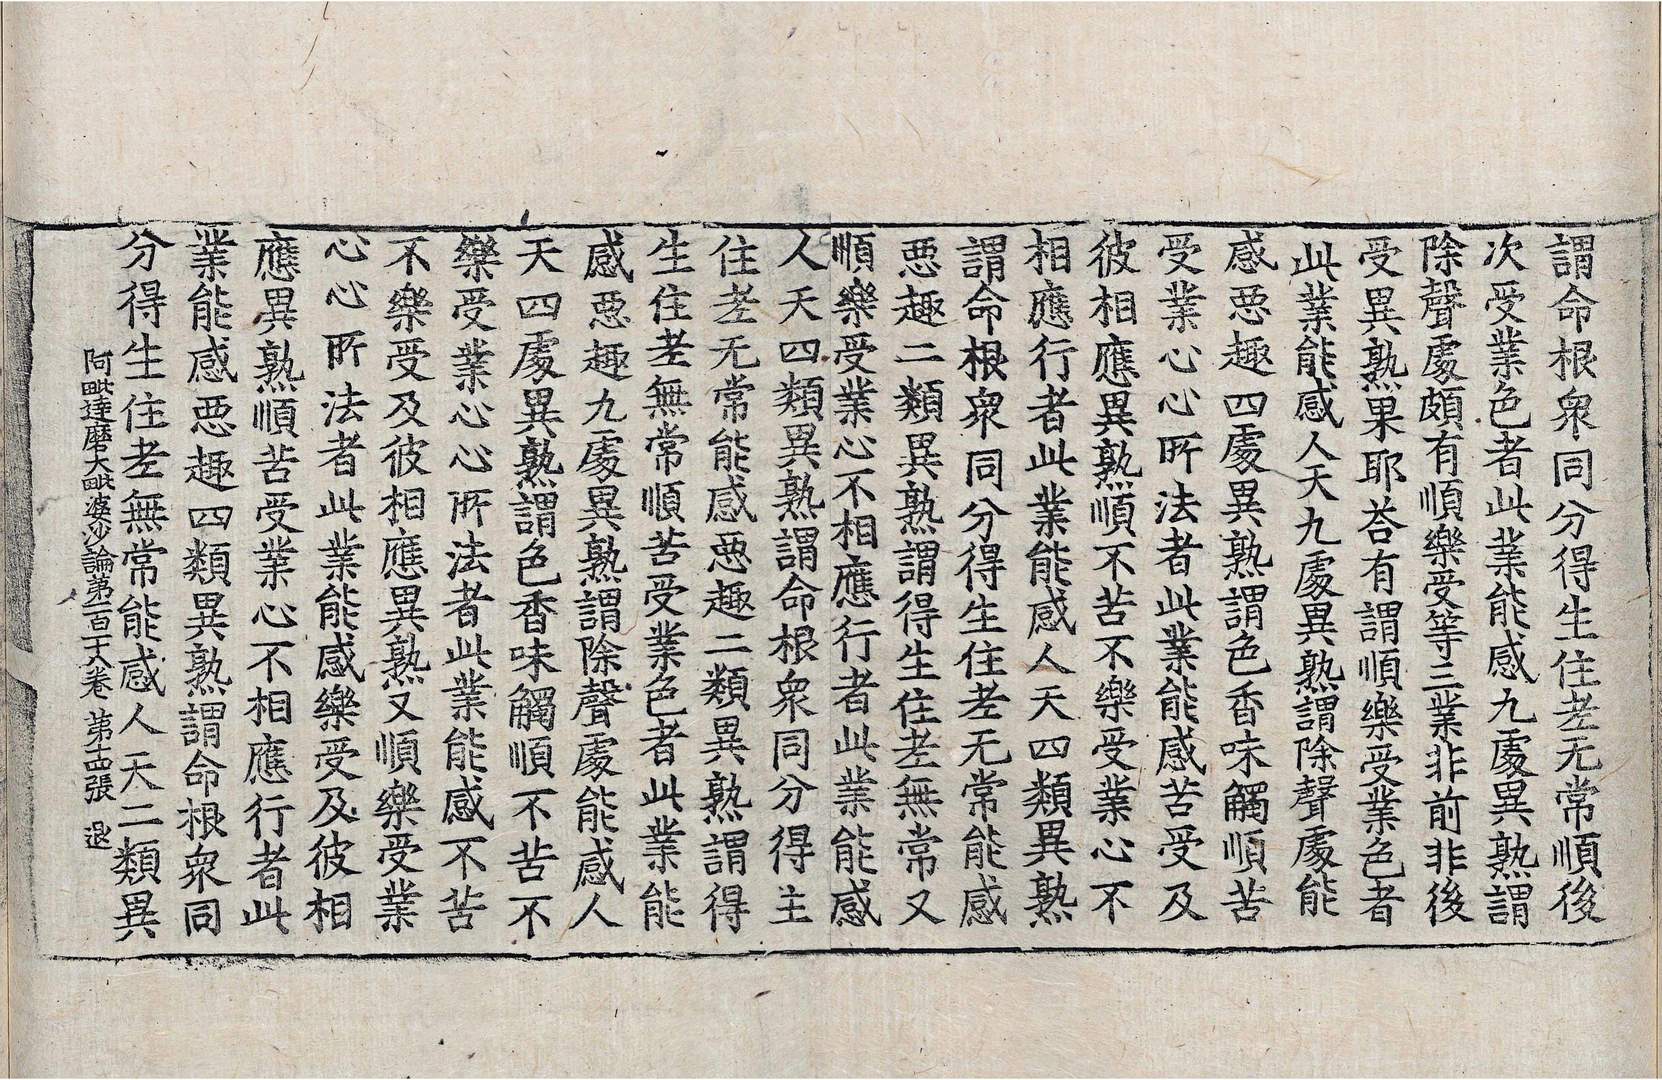 謂命根衆同分得生住老无常順後
次受業色者此業能感九處異熟謂
除聲處頗有順樂受等三業非前非後
受異熟果耶荅有謂順樂受業色者
此業能感人天九處異熟謂除聲處能
感惡趣四處異熟謂色香味觸順苦
受業心心所法者此業能感苦受及
彼相應異熟順不苦不樂受業心不
相應行者此業能感人天四類異熟
謂命根衆同分得生住老无常能感
惡趣二類異熟謂得生住老無常又
順樂受業心不相應行者此業能感
人天四類異熟謂命根衆同分得主
住老无常能感惡趣二類異熟謂得
生住老無常順苦受業色者此業能
感惡趣九處異熟謂除聲處能感人
天四處異熟謂色香味觸順不苦不
樂受業心心所法者此業能感不苦
不樂受及彼相應異熟又順樂受業
心心所法者此業能感樂受及彼相
應異熟順苦受業心不相應行者此
業能感惡趣四類異熟謂命根衆同
分得生住老無常能感人天二類異
阿毗達磨大毗婆沙論第一百十八卷 第十五張 退